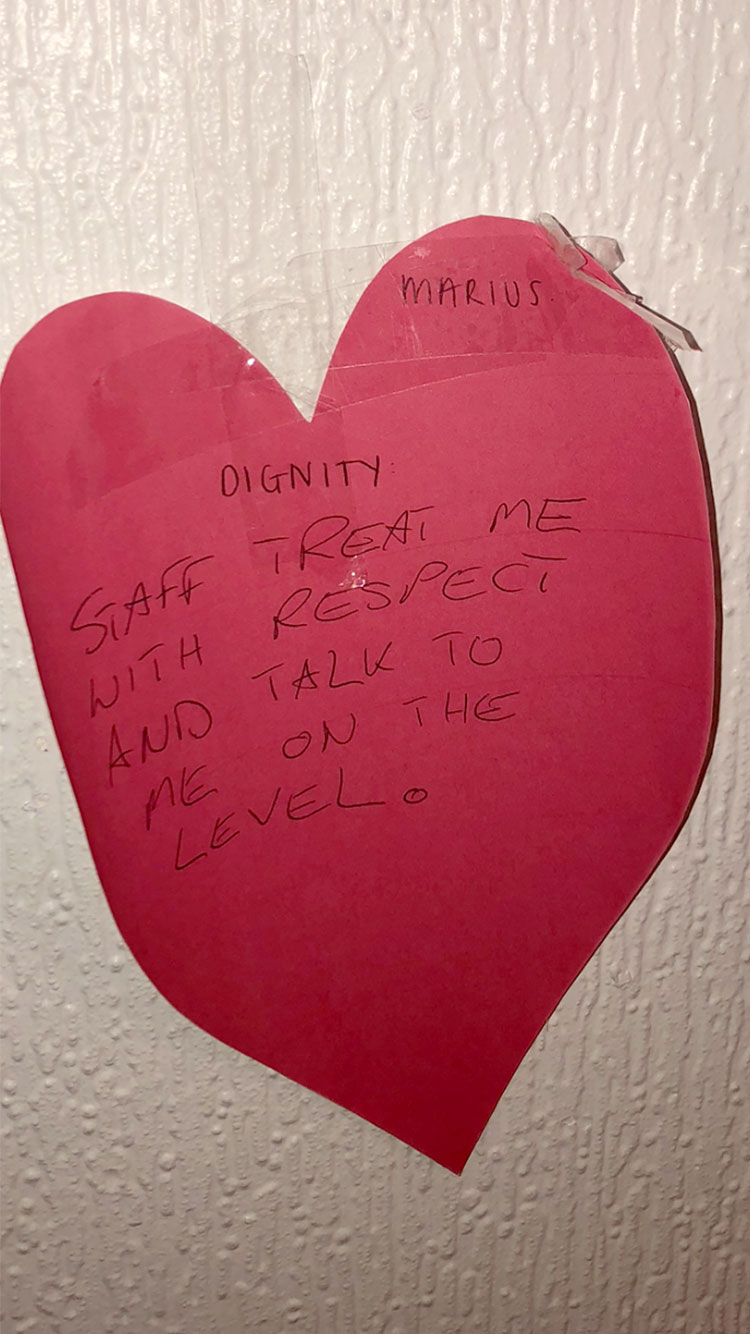 MARIUS.
DIGNITY:
STAFF TREAT ME
WITH RESPECT
AND TALK TO
ME ON THE
LEVEL.